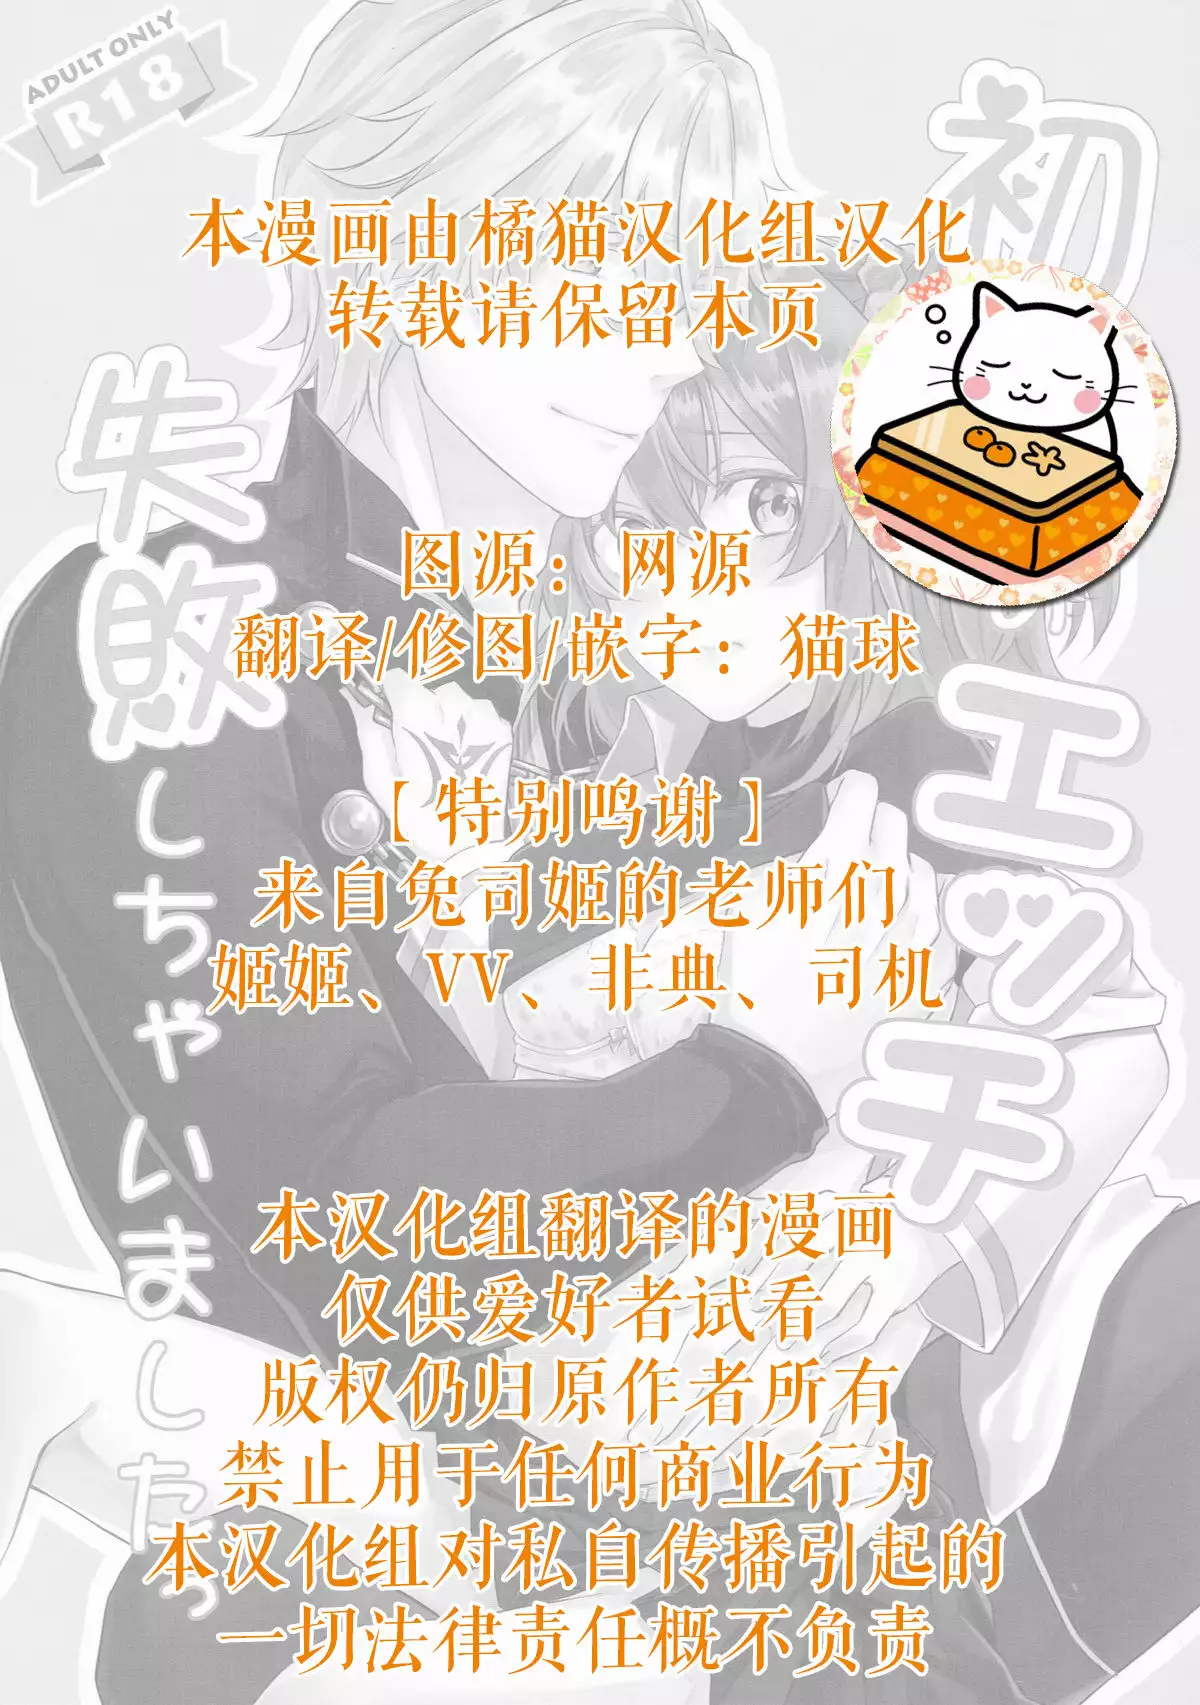 ADULT ONLY
R18
本漫画由橘猫汉化组汉化
转载请保留本页
图源：网源
翻译/修图/嵌字：猫球
【特别鸣谢】
来自兔司姬的老师们
姬姬、VV、非典、司机
本汉化组翻译的漫画
仅供爱好者试看
版权仍归原作者所有
禁止用于任何商业行为
本汉化组对私自传播引起的
一切法律责任概不负责
初
エッチ
失敗しちゃいましたっ